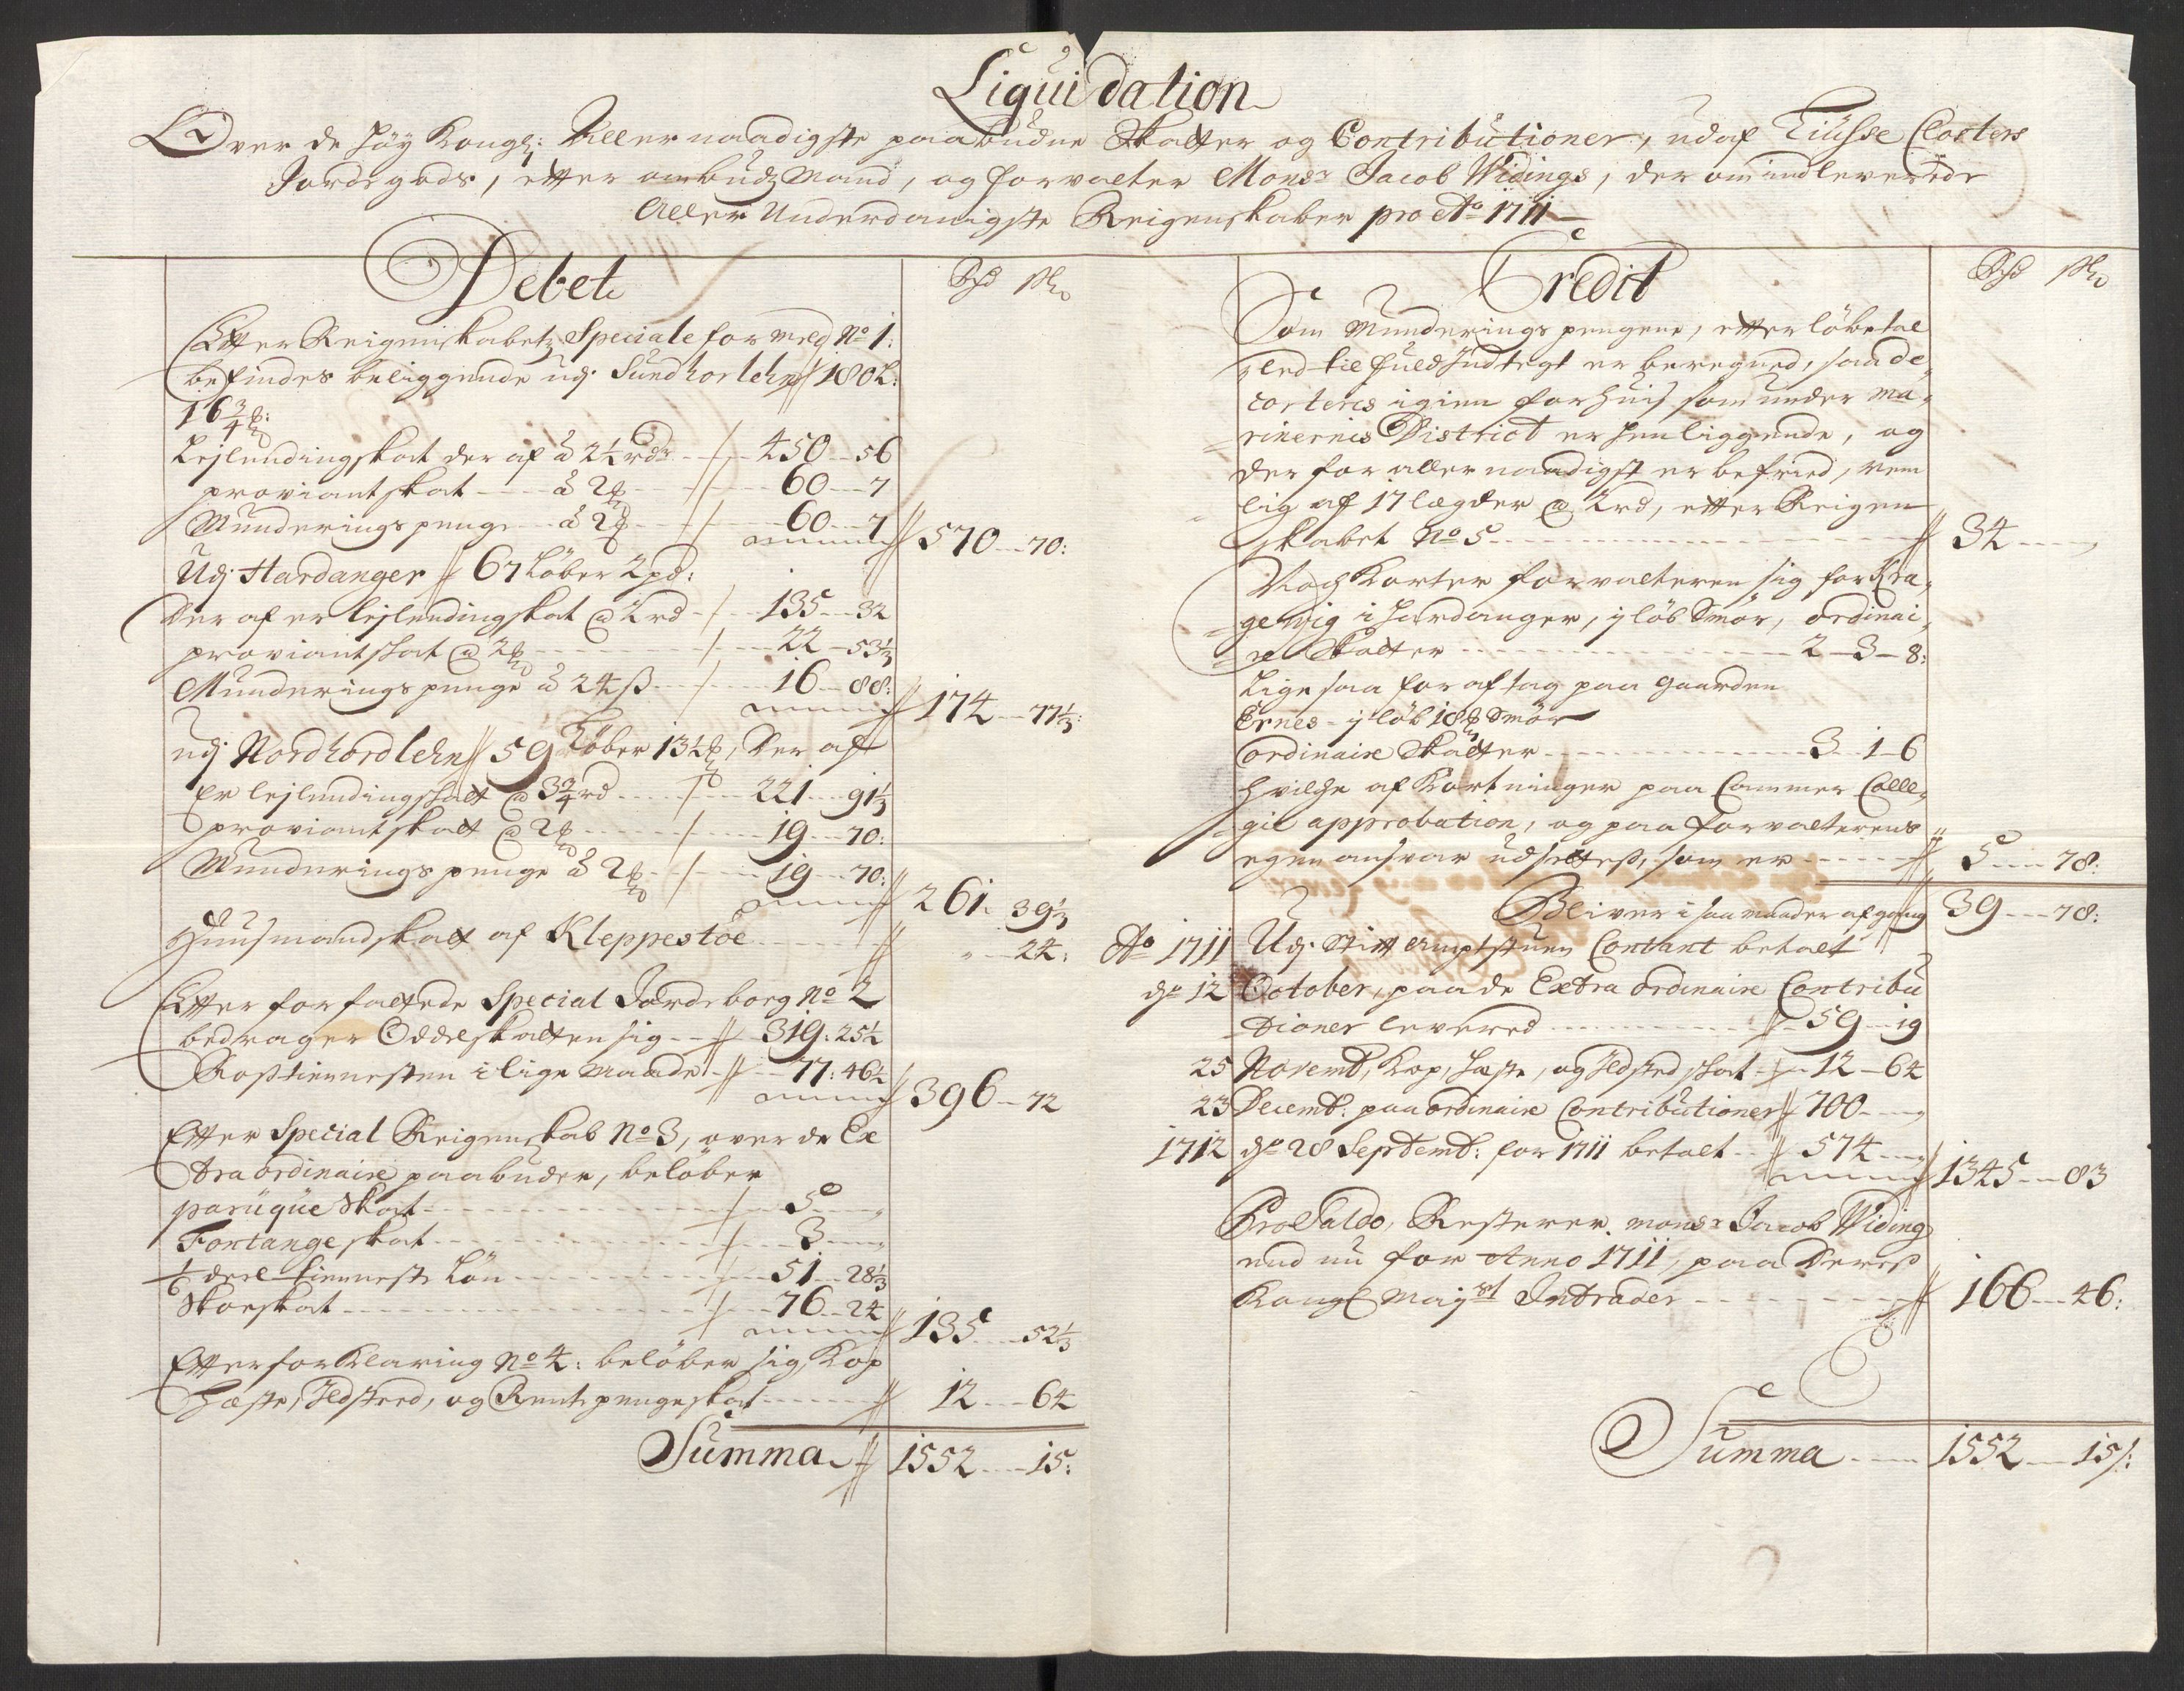 Liquidation
Over de höy Kongl: Allernaadigste paabudne Skatter og Contributioner, udaf Liusse Closters
Jordegods, efter ombudzMand, og forvalter Monsr Jacob Widings, der om indleverede
Aller Underdanigste Reigenskaber pro Ao 1711
Debet
Rd sk
Efter Reigenskabetz Speciale formeld No 1:
befindes beliggende udj Sundhorlehn 180 L:
16 3/4 :
Lejlendingskat der af â 2 1/2 rdr 450 56
proviantskat â 2 60 7
Munderingspenge â 2 60 7
570 70:
Udj Hardanger 67 Løber 2 pd:
Der af er lejlendingskat @ 2 rd 135 32
proviantskat @ 2 22 53 1/3
Munderingspenge â 24 ß 16 88:
174 77 1/3:
udj Nordhordlehn 59 Løber 13 1/2, der af
er lejlendingskatt @ 3 3/4 rd 221 91 1/3
proviantskatt @ 2 19 70:
Munderings penge â 2 19 70:
261 39 1/3
Huusmandskatt af Kleppestöe 24:
Efter forfattede Special Jordebog No 2
bedrager Oddelskatten sig 319: 25 1/2
Rostienesten i lige maade 77: 46 1/2
396 72
Efter Special Reigenskab No 3, over de Ex
traordinaire paabuder, belöber
paruque Skat 5
Fontange skat 3
1/6 deel tienneste Lön 51 28 1/3
Skoeskat 76 24
135 52 1/3
Efter forklaring No 4: belöber sig Kop
Hæste, Ildsted, og Rentepengeskat 12 64
Summa 1552 15:
Credit
Rd sk
Som Munderings pengene, efter löbetal
led til fuld Indtegt er beregned, saa de
corteres igien for huis som under Ma-
rinernis District er henliggende, og
der for allernaadigst er befried, nem
lig af 17 lægder @ 2 rd, efter Reigen
skabet No 5 34
Noch Korter forvalteren sig for Kra-
gewig i Hardanger, j löb Smör, ordinai-
re Skatter 2 3 8:
Lige saa for aftag paa gaarden
Ernes j löb 18 Smör
ordinaire Skatter 3 1 6
hvilche afkortninger paa Cammer Colle-
gii approbation, og paa forvalterens
egen ansvar udsettes, som er 5 78:
Bliver i saa maader afgang 39 78:
Ao 1711 Udj Stiftamptstuen Contant betalt
dn 12 October, paa de Extra ordinaire Contribu
tioner levered 59 19
25 Novemb, Kop, Hæste, og Ildsted skat 12 64
23 Decemb: paa ordinaire Contributioner 700
1712 dn 28 Septemb: for 1711 betalt 574
1345 83
Pro Saldo, Resterer monsr Jacob Widing
end nu for Anno 1711, paa Deres
Kongl Mayst Intrader 166 46:
Summa 1552 15: